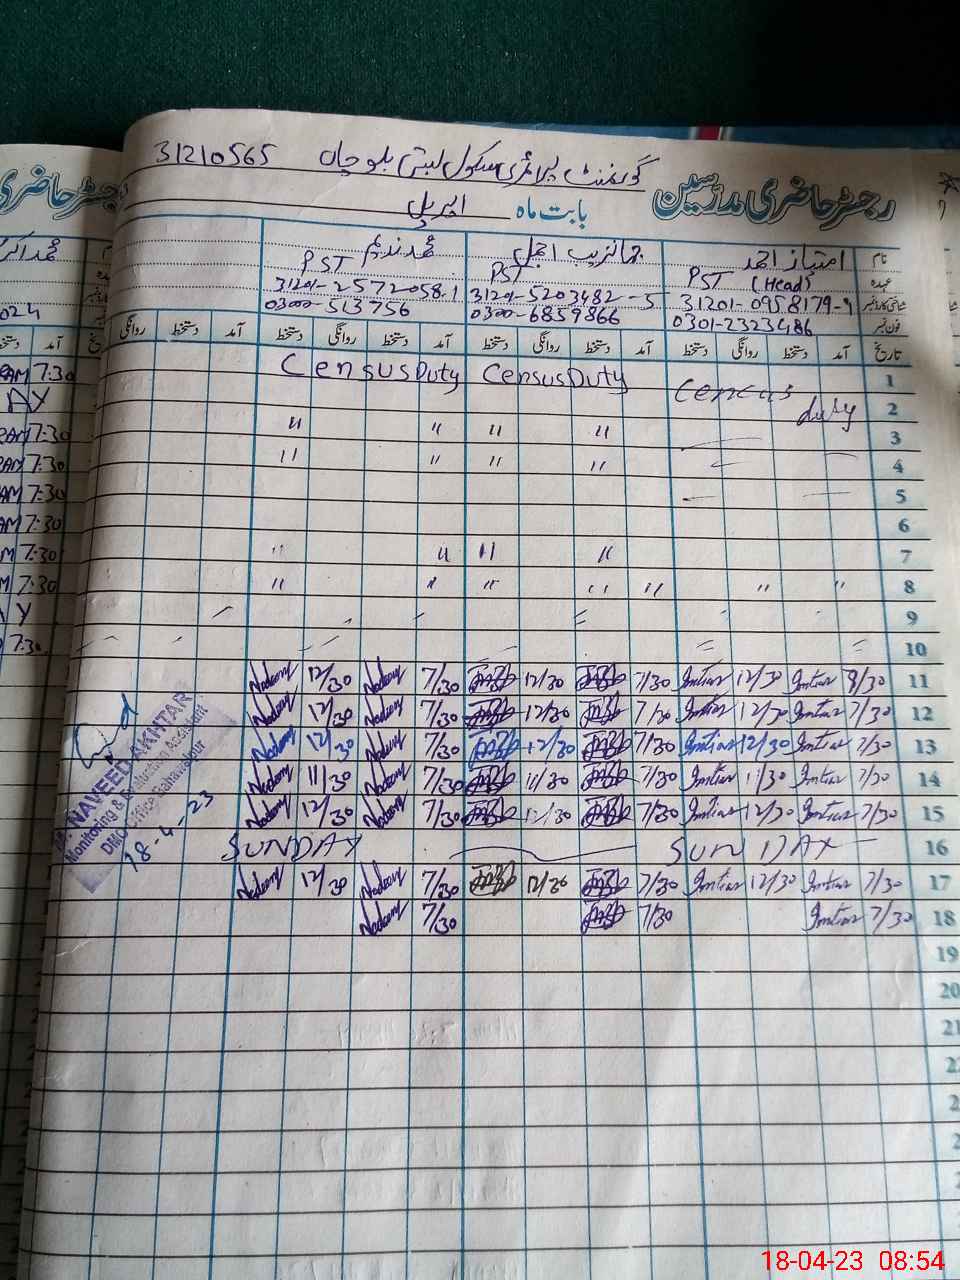 31210565 گورنمنٹ پرائمری سکول بستی بلوچاں
رجسٹر حاضری مدرسین
بابت ماہ اپریل
نام امتیاز احمد جہانزیب اجمل محمد ندیم
عہدہ PST (Head) PST PST
شناختی کارڈ نمبر 31201-0958179-9 31201-5203482-5 31201-2572058-1
فون نمبر 0301-2323486 0300-6859866 0300-513756
تاریخ آمد دستخط روانگی دستخط آمد دستخط روانگی دستخط آمد دستخط روانگی دستخط آمد دستخط روانگی
Census Duty Census Duty Cencus 1
duty 2
〃 〃 〃 〃 3
〃 〃 〃 〃 4
5
6
〃 〃 〃 〃 7
〃 〃 〃 〃 〃 〃 〃 8
9
10
Nadeem 12/30 Nadeem 7/30 12/30 7/30 Imtiaz 12/30 Imtiaz 8/30 11
Nadeem 12/30 Nadeem 7/30 12/30 7/30 Imtiaz 12/30 Imtiaz 7/30 12
Nadeem 12/30 Nadeem 7/30 12/30 7/30 Imtiaz 12/30 Imtiaz 7/30 13
Nadeem 11/30 Nadeem 7/30 11/30 7/30 Imtiaz 11/30 Imtiaz 7/30 14
Nadeem 12/30 Nadeem 7/30 12/30 7/30 Imtiaz 12/30 Imtiaz 7/30 15
SUNDAY SUNDAY 16
Nadeem 12/30 Nadeem 7/30 12/30 7/30 Imtiaz 12/30 Imtiaz 7/30 17
Nadeem 7/30 7/30 Imtiaz 7/30 18
19
20
21
M. NAVEED AKHTAR
Monitoring & Evaluation Assistant
DMO Office Bahawalpur
18-4-23
18-04-23 08:54